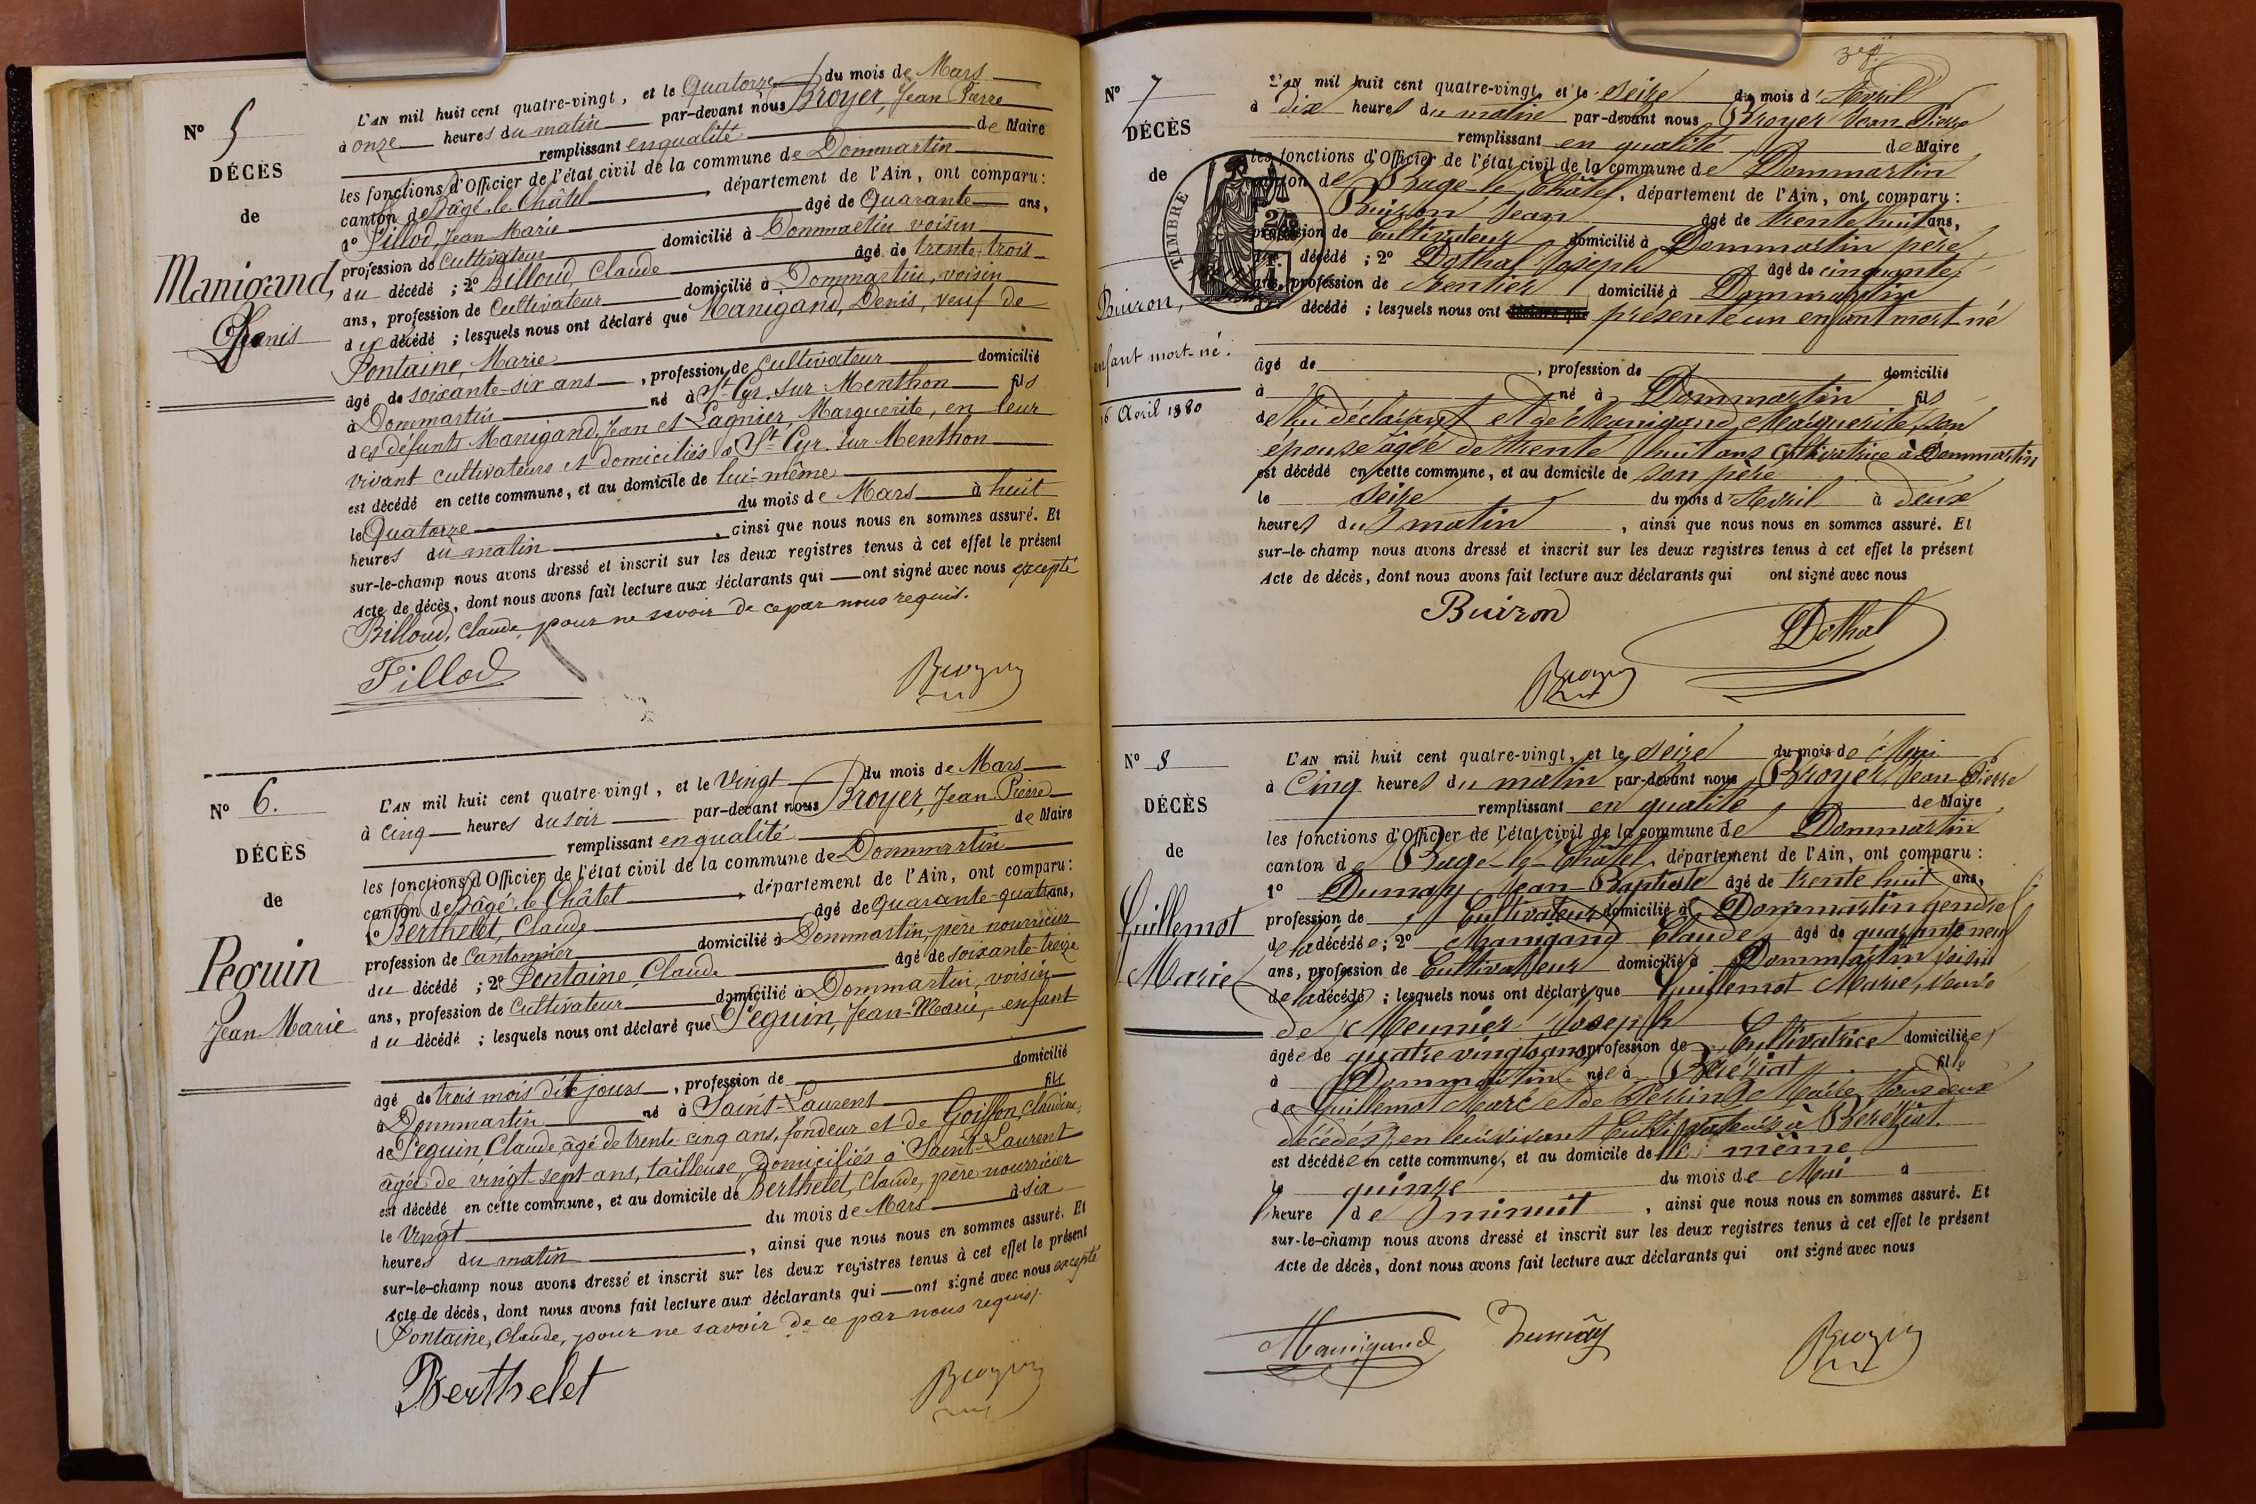 N° 5
DÉCÈS
de
Manigand,
Denis
L'AN mil huit cent quatre-vingt, et le Quatorze du mois de Mars
à onze heures du matin par-devant nous Broyer, Jean Pierre
remplissant en qualité de Maire
les fonctions d'Officier de l'état civil de la commune de Dommartin
canton de Bâgé-le-Châtel, département de l'Ain, ont comparu:
1° Fillod, Jean Marie âgé de Quarante ans,
profession de Cultivateur domicilié à Dommartin voisin
du décédé ; 2° Billoud, Claude âgé de trente-trois
ans, profession de Cultivateur domicilié à Dommartin, voisin
du décédé ; lesquels nous ont déclaré que Manigand, Denis, veuf de
Pontaine, Marie
âgé de soixante-six ans, profession de cultivateur domicilié
à Dommartin né à St Cyr sur Menthon fils
des défunts Manigand, Jean et Lagnier, Marguerite, en leur
vivant cultivateurs et domiciliés à St Cyr sur Menthon
est décédé en cette commune, et au domicile de lui-même
le Quatorze du mois de Mars à huit
heures du matin, ainsi que nous nous en sommes assuré. Et
sur-le-champ nous avons dressé et inscrit sur les deux registres tenus à cet effet le présent
Acte de décès, dont nous avons fait lecture aux déclarants qui ont signé avec nous excepté
Billoud, Claude, pour ne savoir de ce par nous requis.
Fillod Broyer
N° 6.
DÉCÈS
de
Peguin
Jean Marie
L'AN mil huit cent quatre-vingt, et le Vingt du mois de Mars
à cinq heures du soir par-devant nous Broyer, Jean-Pierre
remplissant en qualité de Maire
les fonctions d'Officier de l'état civil de la commune de Dommartin
canton de Bâgé-le-Châtel, département de l'Ain, ont comparu:
1° Berthelet, Claude âgé de Quarante-quatre ans,
profession de Cantonnier domicilié à Dommartin, père nourricier
du décédé ; 2° Pontaine, Claude âgé de soixante-treize
ans, profession de Cultivateur domicilié à Dommartin, voisin
du décédé ; lesquels nous ont déclaré que Peguin, Jean-Marie, enfant
âgé de trois mois dix jours, profession de domicilié
à Dommartin né à Saint-Laurent fils
de Peguin, Claude âgé de trente-cinq ans, fondeur et de Goiffon, Claudine,
âgée de vingt sept ans, tailleuse, domiciliés à Saint-Laurent
est décédé en cette commune, et au domicile de Berthelet, Claude, père nourricier
le Vingt du mois de Mars à six
heures du matin, ainsi que nous nous en sommes assuré. Et
sur-le-champ nous avons dressé et inscrit sur les deux registres tenus à cet effet le présent
Acte de décès, dont nous avons fait lecture aux déclarants qui ont signé avec nous excepté
Pontaine, Claude, pour ne savoir de ce par nous requis.
Berthelet Broyer
N° 7
DÉCÈS
de
Buiron,
enfant mort-né.
16 Avril 1880
TIMBRE
L'AN mil huit cent quatre-vingt, et le seize du mois d'Avril
à dix heures du matin par-devant nous Broyer Jean-Pierre
remplissant en qualité de Maire
les fonctions d'Officier de l'état civil de la commune de Dommartin
canton de Bagé-le-Châtel, département de l'Ain, ont comparu:
Buiron Jean âgé de trente huit ans,
profession de Cultivateur domicilié à Dommartin père
décédé ; 2° Dothal Joseph âgé de cinquante
ans, profession de Rentier domicilié à Dommartin
décédé ; lesquels nous ont déclaré que présenté un enfant mort-né
âgé de , profession de domicilié
à né à Dommartin fils
de lui déclarant et de Manigand Marguerite, son
épouse âgée de trente huit ans Cultivatrice à Dommartin
est décédé en cette commune, et au domicile de son père
le seize du mois d'Avril à deux
heures du matin, ainsi que nous nous en sommes assuré. Et
sur-le-champ nous avons dressé et inscrit sur les deux registres tenus à cet effet le présent
Acte de décès, dont nous avons fait lecture aux déclarants qui ont signé avec nous
Buiron Dothal
Broyer
N° 8
DÉCÈS
de
Guillemot
Marie
L'AN mil huit cent quatre-vingt, et le seize du mois de Mai
à Cinq heures du matin par-devant nous Broyer, Jean-Pierre
remplissant en qualité de Maire
les fonctions d'Officier de l'état civil de la commune de Dommartin
canton de Bagé-le-Châtel, département de l'Ain, ont comparu:
1° Dumay Jean-Baptiste âgé de trente huit ans,
profession de Cultivateur domicilié à Dommartin gendre
de la décédée ; 2° Manigand Claude, âgé de quarante neuf
ans, profession de Cultivateur domicilié à Dommartin voisin
de la décédée ; lesquels nous ont déclaré que Guillemot Marie, veuve
de Meunier Joseph
âgée de quatre vingts ans, profession de Cultivatrice domiciliée
à Dommartin née à Béréziat fille
de Guillemot Marc et de Perrin Marie tous deux
décédés, en leur vivant Cultivateurs à Béréziat.
est décédée en cette commune, et au domicile de elle même
le quinze du mois de Mai à
heure de minuit, ainsi que nous nous en sommes assuré. Et
sur-le-champ nous avons dressé et inscrit sur les deux registres tenus à cet effet le présent
Acte de décès, dont nous avons fait lecture aux déclarants qui ont signé avec nous
Manigand Dumay Broyer